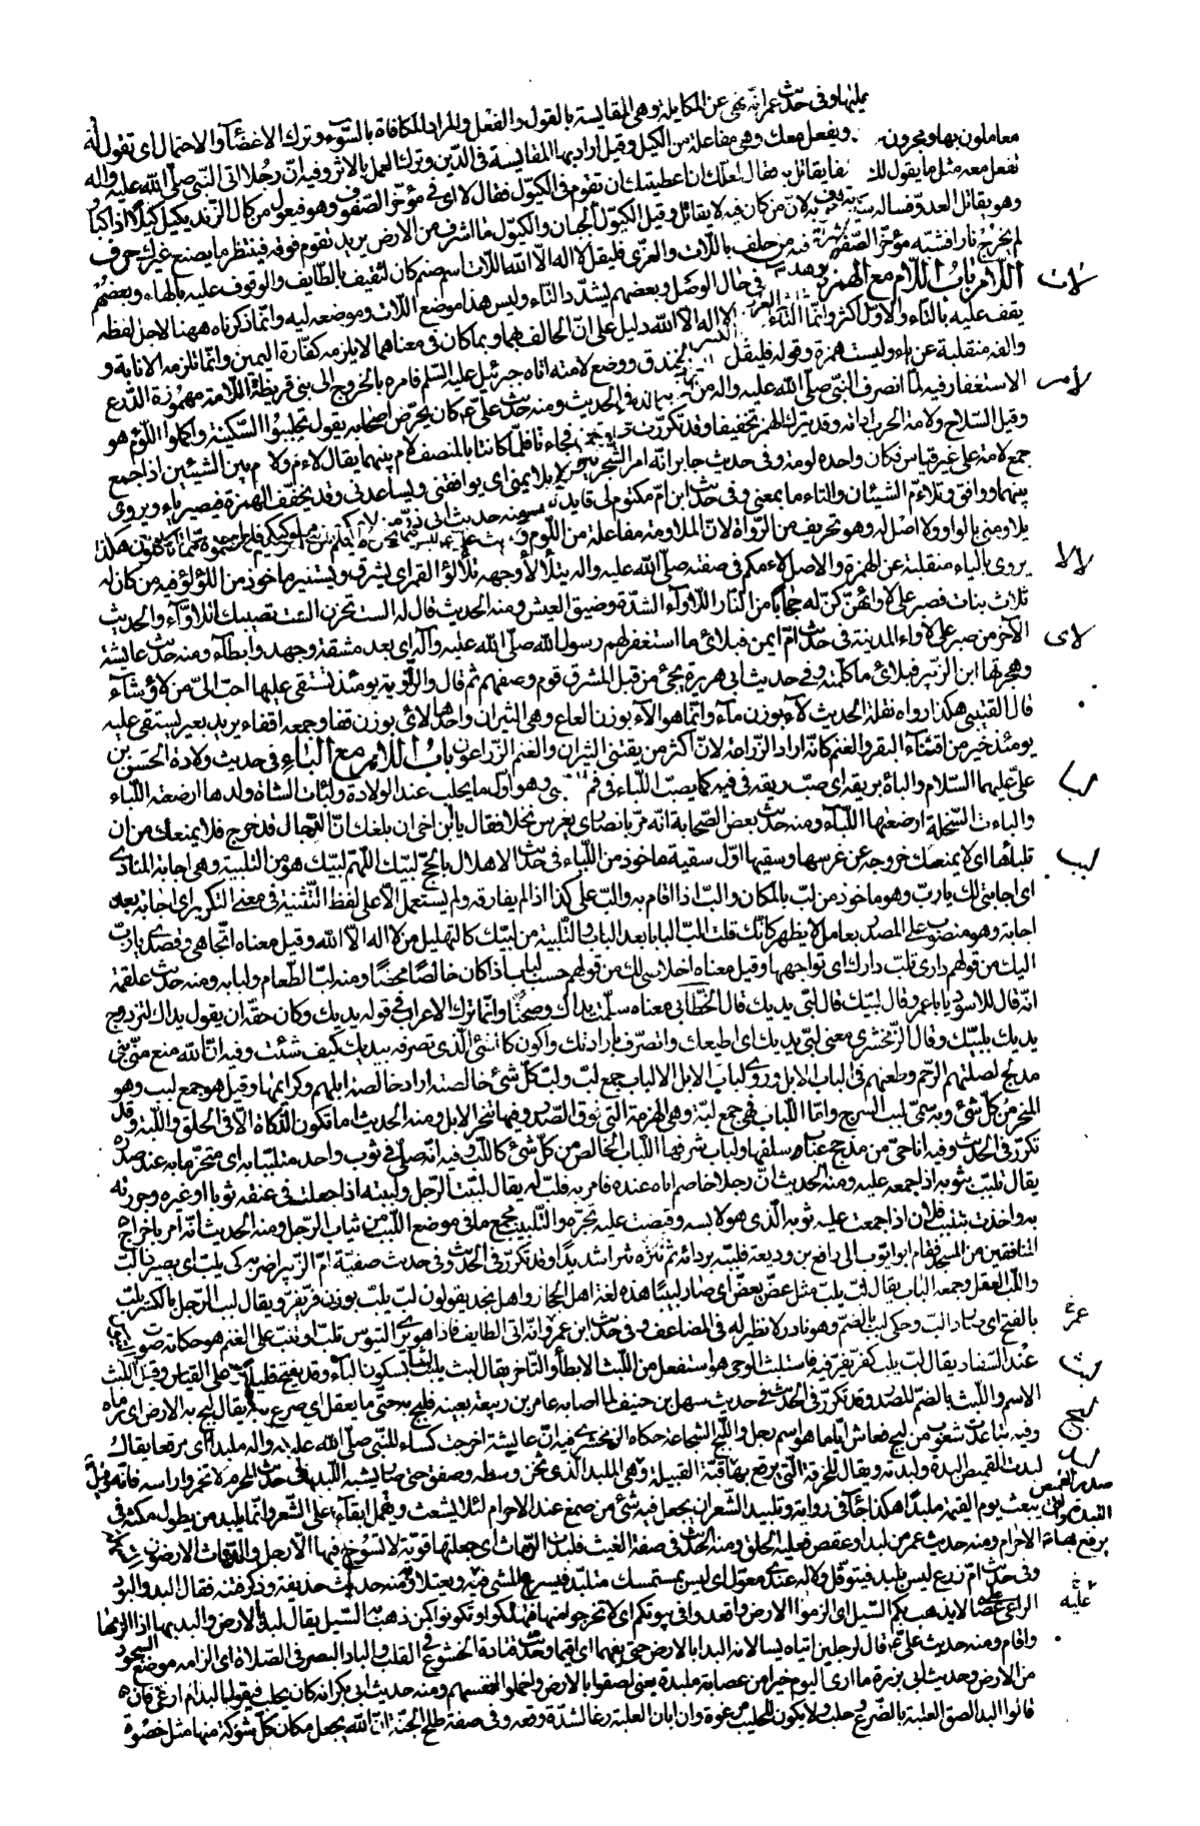 يمليها وفى حديث عمر انّه نهى عن المكايلة وهى المقايسة بالقول والفعل والمراد المكافاة بالسّوء وترك الاغضاء والاحتمال اى تقول له
معاملون بها ومجرون ويفعل معك وهى مفاعلة من الكيل وقيل اراد بها المقايسة فى الدّين وترك العمل بالاثر وفيه انّ رجلا اتى النّبى صلّى الله عليه واله
تفعل معه مثل ما يقول لك
وهو يقاتل العدوّ فساله سيفا يقاتل به فقال لعلّك ان اعطيتك ان تقوم فى الكيّول فقال لا اى فى مؤخّر الصّفوف وهو فيعول من كال الزّند يكيل كيلا اذا كبا
لم يخرج نارا فشبّه مؤخّر الصّفوف به لانّ من كان فيه لا يقاتل وقيل الكيّول الجبان والكيّول ما اشرف من الارض يريد تقوم فوقه فينتظر ما يصنع غيرك حرف
لات اللام باب اللام مع الهمزة فيه من حلف باللّات والعزّى فليقل لا اله الّا الله اللّات اسم صنم كان لثقيف بالطّايف والوقوف عليه بالهاء وبعضهم
يقف عليه بالتّاء والاوّل اكثر وانّما التّاء فى حال الوصل وبعضهم يشدّد التّاء وليس هذا موضع اللّات وموضعه ليه وانّما ذكرناه ههنا لاجل لفظه
والفه منقلبة عن ياء وليست همزة وقوله فليقل لا اله الّا الله دليل على انّ الحالف بهما وبما كان فى معناهما لا يلزمه كفّارة اليمين وانّما تلزمه الانابة و
لأم الاستغفار فيه لمّا انصرف النّبىّ صلّى الله عليه واله من الخندق ووضع لامته اتاه جبرئيل عليه السّلم فامره بالخروج الى بنى قريظة اللّامة مهموزة الدّرع
وقيل السّلاح ولامة الحرب اداته وقد يترك الهمز تخفيفا وقد تكرّرت فى الحديث ومنه حديث علىّ كان يحرّض اصحابه يقول تجلببوا السّكينة واكملوا اللّؤم هو
جمع لامة على غير قياس فكان واحده لومة وفى حديث جابر انّه امر الشّجرتين فجاءتا فلمّا كانتا بالمنصف لام بينهما يقال لاءم ولام بين الشيئين اذا جمع
بينهما ووافق وتلاءم الشيئان والتاءما بمعنى وفى حديث ابن امّ مكتوم لى قايد لا يلايمنى اى يوافقنى ويساعدنى وقد يخفّف الهمزة فيصير ياء ويروى
يلاومنى بالواو ولا اصل له وهو تحريف من الرّواة لانّ الملاومة مفاعلة من اللّوم ومنه حديث ابى ذرّ من لايمكم من مملوكيكم فاطعموه ممّا تاكلون هكذا
لألأ يروى بالياء منقلبة عن الهمزة والاصل لاءمكم فى صفته صلّى الله عليه واله يتلألأ وجهه تلألؤ القمر اى يشرق ويستنير ماخوذ من اللؤلؤ فيه من كان له
ثلاث بنات فصبر على لاوائهنّ كنّ له حجابا من النار اللّاوآء الشدّة وضيق العيش ومنه الحديث قال له الست تحزن الست تصيبك اللّاوآء والحديث
لأى الآخر من صبر على لاواء المدينة فى حديث امّ ايمن فبلائ ما استغفر لهم رسول الله صلّى الله عليه وآله اى بعد مشقة وجهد وابطآء ومنه حديث عايشة
وهجرتها ابن الزّبير فبلائ ما كلّمته وفى حديث ابى هريرة يجئ من قبل المشرق قوم وصفهم ثم قال والرّاوية يومئذ يستقى عليها احبّ الىّ من لاؤ وشآء
قال القتيبى هكذا رواه نقلة الحديث لآء بوزن مآء وانّما هو الآء بوزن العاع وهى الثيران واحدها لائ بوزن قفا وجمعه اقفاء يريد بعير يستقى عليه
يومئذ خير من اقتنآء البقر والغنم كانّه اراد الزّراعة لانّ اكثر من يقتنى الثيران والغنم الزّراعون باب اللام مع الباء فى حديث ولادة الحسن بن
لبأ علىّ عليهما السّلام والباه بريقه اى صبّ ريقه فى فيه كما يصبّ اللّباء فى فم الصبى وهو اوّل ما يحلب عند الولادة ولبئات الشاة ولدها ارضعته اللّباء
والبات السّخلة ارضعتها اللّبآء ومنه حديث بعض الصّحابة انّه مرّ بانصارى يغرس نخلا فقال يا ابن اخى ان بلغك انّ الدّجال قد خرج فلا يمنعك من ان
لبب تلباها اى لا يمنعك خروجه عن غرسها وسقيها اوّل سقية ماخوذ من اللّباء فى حديث الاهلال بالحجّ لبّيك اللّهمّ لبّيك هو من التلبية وهى اجابة المنادى
اى اجابتى لك يا ربّ وهو ماخوذ من لبّ بالمكان والبّ اذا اقام به والبّ على كذا اذا لم يفارقه ولم يستعمل الّا على لفظ التّثنية فى معنى التكرير اى اجابة بعد
اجابة وهو منصوب على المصدر بعامل لا يظهر كانّك قلت البّ البابا بعد الباب والتّلبية من لبّيك كالتهليل من لا اله الّا الله وقيل معناه اتّجاهى وقصدى يا ربّ
اليك من قولهم دارى تلبّ دارك اى تواجهها وقيل معناه اخلاصى لك من قولهم حسب لباب اذا كان خالصا محضا ومنه لبّ الطّعام ولبابه ومنه حديث علقمة
انّه قال للاسود يا ابا عمرو قال لبّيك قال لبّى يديك قال الخطّابى معناه سلمت يداك وصحّتا وانّما ترك الاعراب فى قوله يديك وكان حقّه ان يقول يداك لتزدوج
يديك بلبّيك وقال الزّمخشرى معنى لبّى يديك اى اطيعك واتصرّف بارادتك واكون كالشئ الّذى تصرفه بيديك كيف شئت وفيه انّ الله منع منّى بنى
مدلج لصلتهم الرّحم وطعنهم فى الباب الابل وروى لباب الابل الالباب جمع لبّ ولبّ كلّ شئ خالصه اراد خالصة ابلهم وكرايمها وقيل هو جمع لبب وهو
المنحر من كلّ شئ وبه سمّى لبب السرج وامّا اللّباب فهى جمع لبّة وهى الهزمة التى فوق الصّدر وفيها تنحر الابل ومنه الحديث اما تكون الذّكاة الّا فى الحلق واللّبّة وقد
تكرّر فى الحديث وفيه انا حىّ من مذحج عباب سلفها ولباب شرفها اللّباب الخالص من كلّ شئ كاللّبّ وفيه انّه صلّى فى ثوب واحد متلبّبا به اى متحزّما به عند صدره
يقال تلبّب بثوبه اذا جمعه عليه ومنه الحديث انّ رجلا خاصم اباه عنده فامر به فلبّ له يقال لبّبت الرّجل ولبّبته اذا جعلت فى عنقه ثوبا او غيره وجررته
به واخذت بتلبيب فلان اذا جمعت عليه ثوبه الّذى هو لابسه وقبضت عليه تجرّه والتّلبيب مجمع ما فى موضع اللّبب من ثياب الرّجل ومنه الحديث انّه امر باخراج
المنافقين من المسجد فقام ابو ايّوب الى رافع بن وديعة فلبّبه بردائه ثم نتره نترا شديدا وقد تكرّر فى الحديث وفى حديث صفيّة امّ الزّبير اضربه كى يلبّ اى يصير ذا لبّ
واللّبّ العقل وجمعه الباب يقال لبّ يلبّ مثل عضّ يعضّ اى صار لبيبا هذه لغة اهل الحجاز واهل نجد يقولون لبّ يلبّ بوزن فرّ يفرّ ويقال لبب الرّجل بالكسر يلبّ
بالفتح اى صار ذا لبّ وحكى لبب بالضمّ وهو نادر لا نظير له فى المضاعف وفى حديث ابن عمرو انّه اتى الطايف فاذا هو يرى التيوس تلبّ او تنبّ على الغنم هو حكاية صوت
لبث عند السّفاد يقال لبّ يلبّ كفرّ يفرّ فيه فاستلبث الوحى هو استفعل من اللّبث الابطآء والتّاخر يقال لبث يلبث لبثا بسكون البآء وقد يفتح قليلا على القياس وقيل اللّبث
لبج الاسم واللّبث بالضمّ المصدر وقد تكرّر فى الحديث فى حديث سهل بن حنيف لمّا اصابه عامر بن ربيعة بعينه فلبج به حتى ما يعقل اى صرع به يقال لبج به الارض اى رماه
وفيه تباعدت شعوب من لبج فعاش ايّاما هو اسم رجل واللّبج الشجاعة حكاه الزمخشرى فيه انّ عايشة اخرجت كساء للنّبى صلّى الله عليه واله ملبّدا اى مرقعا يقال
لبد لبدت القميص البده ولبدته ويقال للخرقة الّتى يرقع بها قبّة القبيلة وقيل الملبد الّذى ثخن وسطه وصفق حتى صار يشبه اللّبد وفى حديث المحرم لا تخمروا راسه فانّه
يبعث يوم القيمة ملبّدا هكذا جآء فى رواية وتلبيد الشّعر ان يجعل فيه شئ من صمغ عند الاحرام لئلّا يشعث ويقمل ابقآء على الشّعر وانّما يلبد من يطول مكثه فى
الاحرام ومنه حديث عمر من لبد او عقص فعليه الحلق ومنه الحديث فى صفة الغيث فلبّدت الدّماث اى جعلتها قويّة لا تسوخ فيها الارجل والدّماث الارضون
وفى حديث امّ زرع ليس بلبد فيتوقّل ولا له عندى معوّل اى ليس بمستمسك متلبّد فيسرع المشى فيه ويعتلا ومنه حديث حذيفة وذكر فتنة فقال البدوا لبود
الراعى على عصاه لا يذهب بكم السّيل اى الزموا الارض واقعدوا فى بيوتكم اى لا تخرجوا منها فتهلكوا وتكونوا كمن ذهب به السّيل يقال لبد بالارض والبد بها اذا لزمها
واقام ومنه حديث علىّ قال لرجلين اتياه يسالانه البدا بالارض حتى تفهما اى اقيما وحديث قتادة الخشوع فى القلب والباد البصر فى الصّلاة اى الزامه موضع السجود
من الارض وحديث ابى برزة ما ارى اليوم خيرا من عصابة ملبدة يعنى لصقوا بالارض واخملوا انفسهم ومنه حديث ابى بكر انّه كان يحلب فيقول البد ام ارغى فان
قالوا البد الصق العلبة بالضّرع وحلب ولا يكون للحليب رغوة وان ابان العلبة رغا لشدّة وقعه وفى صفة طلح الجنّة انّ الله يجعل مكان كلّ شوكة منها مثل خصوة